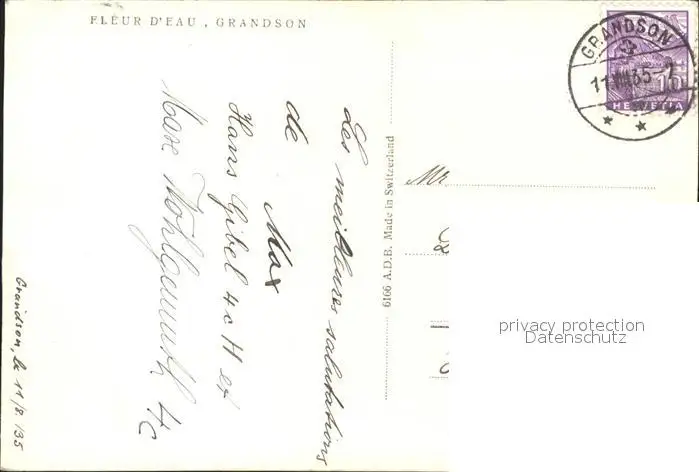 FLEUR D'EAU , GRANDSON
Grandson, le 11/8. /35
Les meilleures salutations
de Max
Hans Gibel 4c H et
Max Wohlgemuth 4c
6166 A.D.B. Made in Switzerland
Mr.
GRANDSON
HELVETIA
privacy protection
Datenschutz